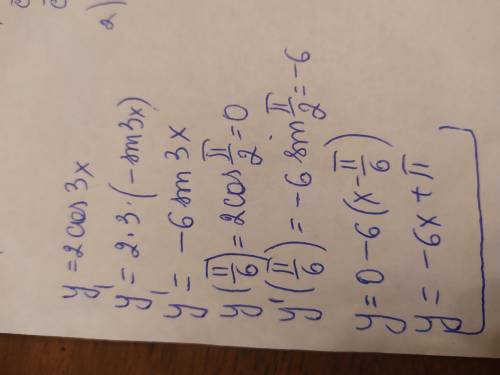 2)
y = 2cos3x
y' = 2·3·(−sin3x)
y' = −6sin3x
y(π/6) = 2cos π/2 = 0
y'(π/6) = −6 sin π/2 = −6
y = 0 − 6(x − π/6)
y = −6x + π